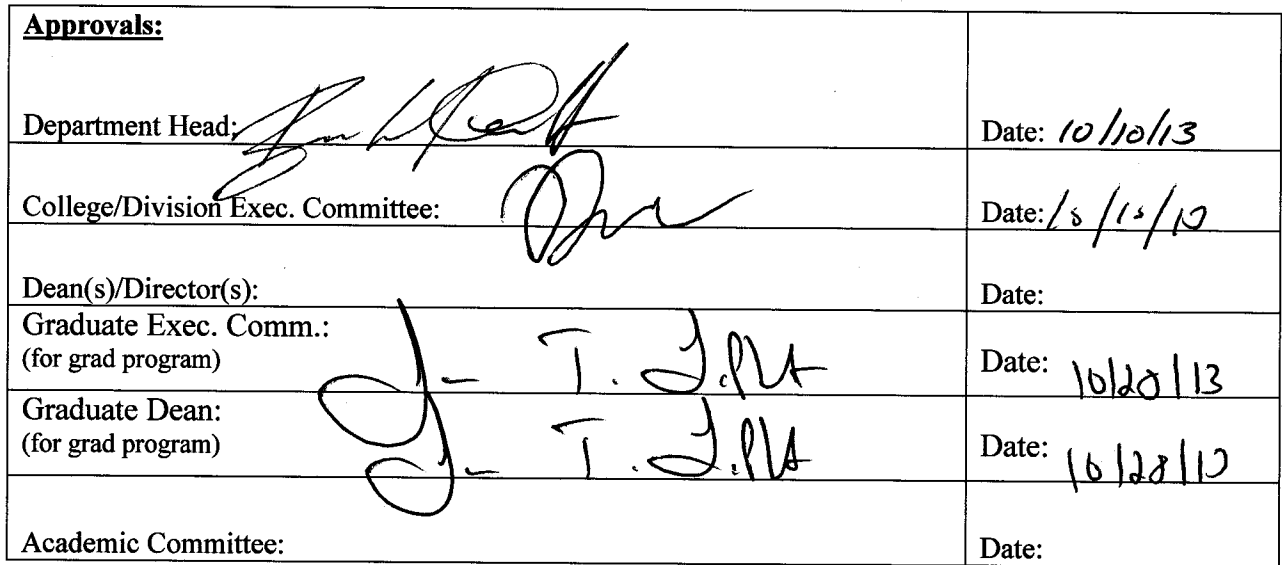 Approvals:
Department Head:
Date: 10/10/13
College/Division Exec. Committee:
Date:
Dean(s)/Director(s):
Date:
Graduate Exec. Comm.:
(for grad program)
Date: 10/28/13
Graduate Dean:
(for grad program)
Date: 10/28/13
Academic Committee:
Date: